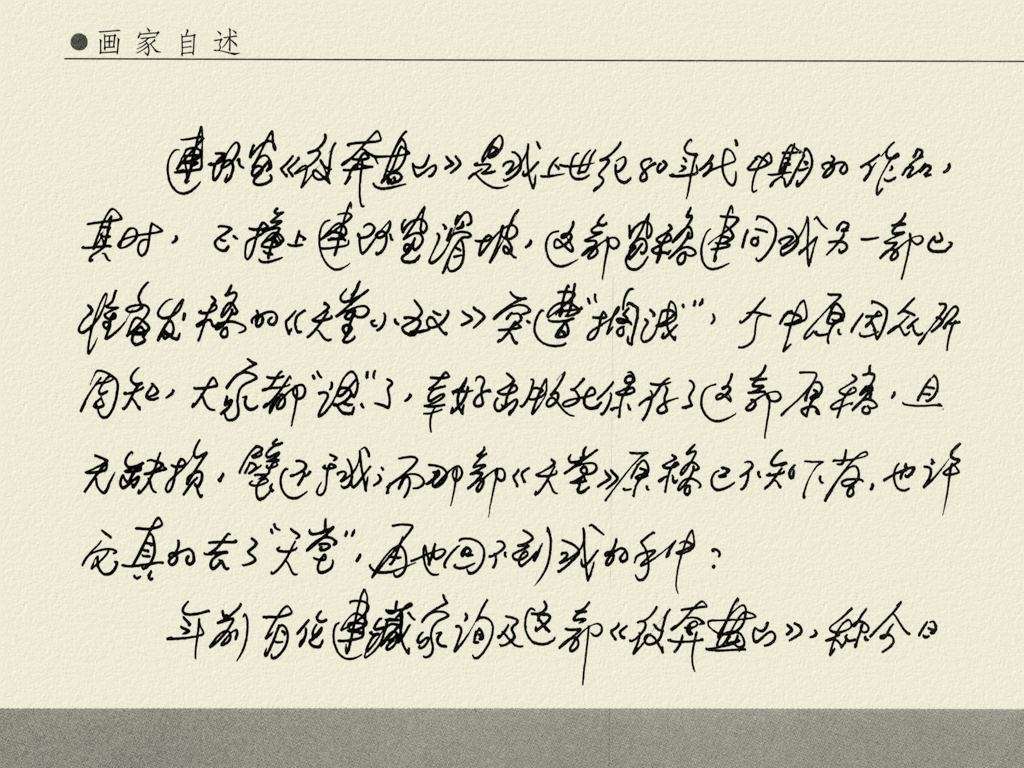 ●画家自述
连环画《夜奔盘山》是我上世纪80年代中期的作品，
其时，正撞上连环画滑坡，这部画稿连同我另一部已
准备发稿的《天堂小议》突遭“搁浅”，个中原因众所
周知，大家都“认”了，幸好出版社保存了这部原稿，且
无缺损，璧还于我；而那部《天堂》原稿已不知下落，也许
它真的去了“天堂”，再也回不到我的手中？
年前有位连藏家询及这部《夜奔盘山》，称今日